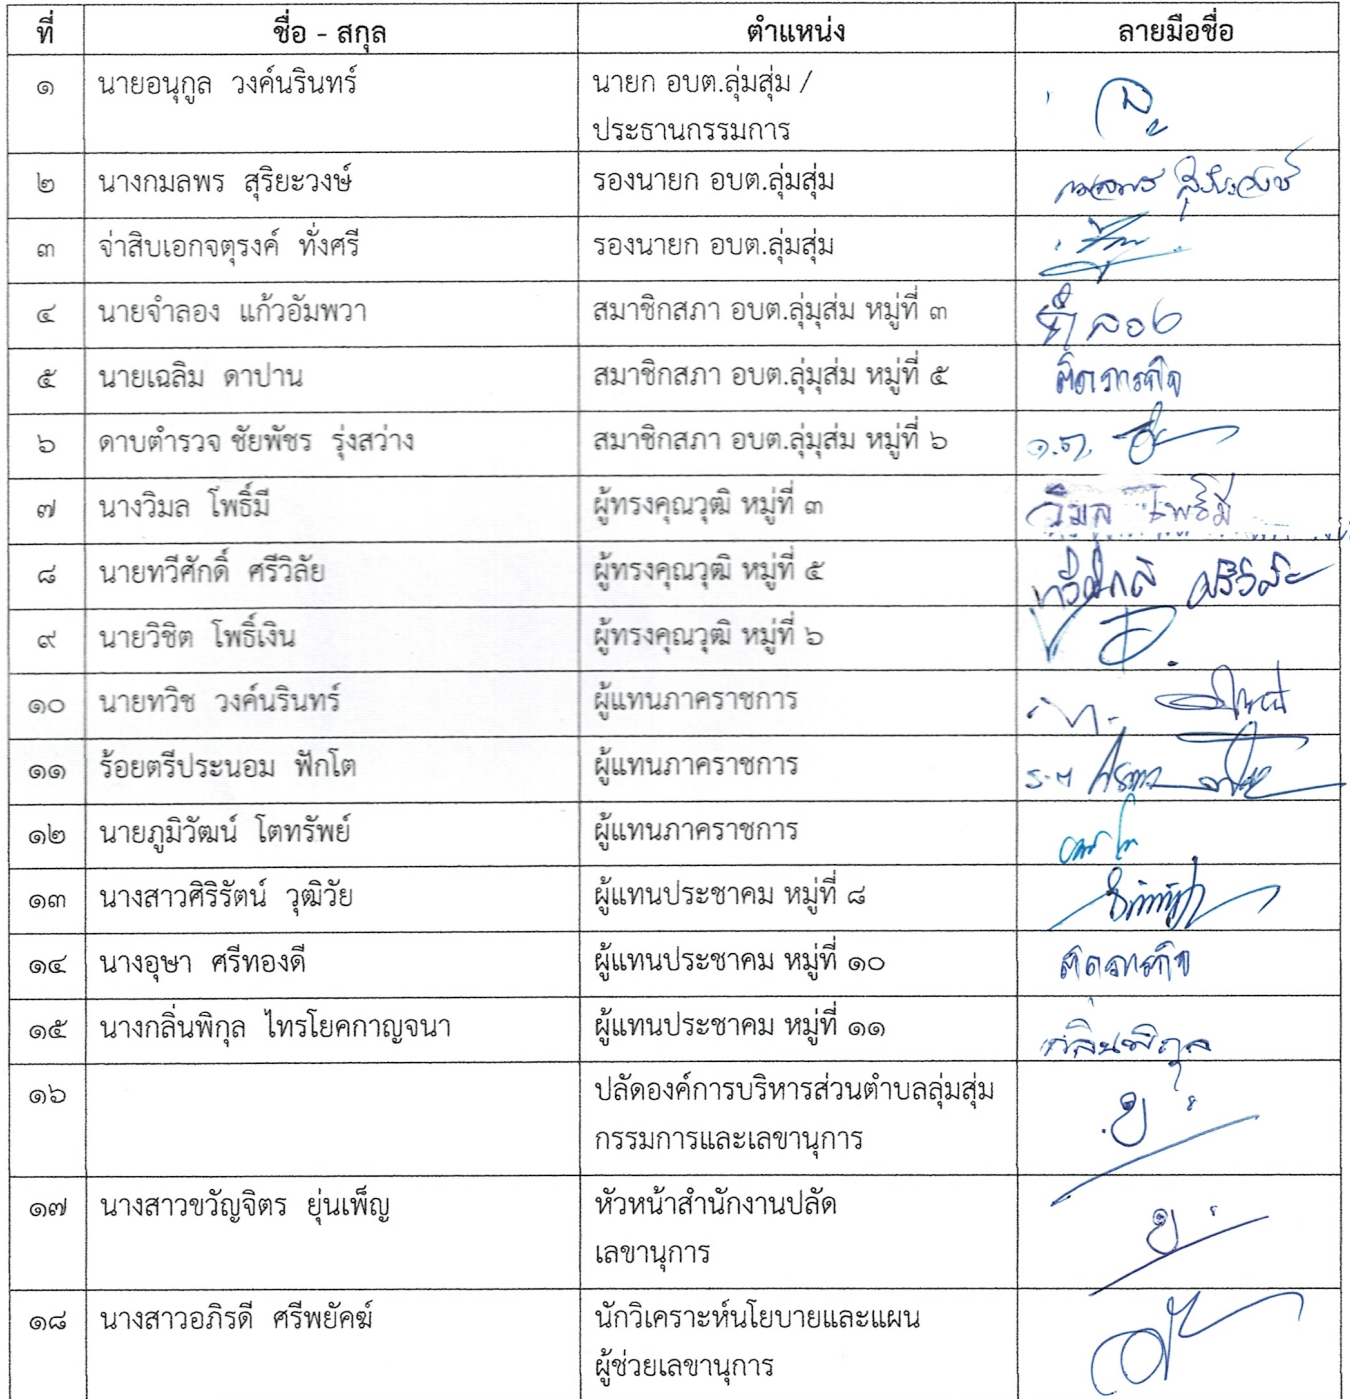 ที่ ชื่อ - สกุล ตำแหน่ง ลายมือชื่อ
๑ นายอนุกูล วงค์นรินทร์ นายก อบต.ลุ่มสุ่ม /
ประธานกรรมการ
๒ นางกมลพร สุริยะวงษ์ รองนายก อบต.ลุ่มสุ่ม กมลพร สุริยะวงษ์
๓ จ่าสิบเอกจตุรงค์ ทั่งศรี รองนายก อบต.ลุ่มสุ่ม
๔ นายจำลอง แก้วอัมพวา สมาชิกสภา อบต.ลุ่มุส่ม หมู่ที่ ๓ จำลอง
๕ นายเฉลิม ดาปาน สมาชิกสภา อบต.ลุ่มุส่ม หมู่ที่ ๕ ติดภารกิจ
๖ ดาบตำรวจ ชัยพัชร รุ่งสว่าง สมาชิกสภา อบต.ลุ่มุส่ม หมู่ที่ ๖
๗ นางวิมล โพธิ์มี ผู้ทรงคุณวุฒิ หมู่ที่ ๓ วิมล โพธิ์มี
๘ นายทวีศักดิ์ ศรีวิลัย ผู้ทรงคุณวุฒิ หมู่ที่ ๕ ทวีศักดิ์ ศรีวิลัย
๙ นายวิชิต โพธิ์เงิน ผู้ทรงคุณวุฒิ หมู่ที่ ๖
๑๐ นายทวิช วงค์นรินทร์ ผู้แทนภาคราชการ
๑๑ ร้อยตรีประนอม ฟักโต ผู้แทนภาคราชการ
๑๒ นายภูมิวัฒน์ โตทรัพย์ ผู้แทนภาคราชการ
๑๓ นางสาวศิริรัตน์ วุฒิวัย ผู้แทนประชาคม หมู่ที่ ๘
๑๔ นางอุษา ศรีทองดี ผู้แทนประชาคม หมู่ที่ ๑๐ ติดภารกิจ
๑๕ นางกลิ่นพิกุล ไทรโยคกาญจนา ผู้แทนประชาคม หมู่ที่ ๑๑ กลิ่นพิกุล
๑๖ ปลัดองค์การบริหารส่วนตำบลลุ่มสุ่ม
กรรมการและเลขานุการ
๑๗ นางสาวขวัญจิตร ยุ่นเพ็ญ หัวหน้าสำนักงานปลัด
เลขานุการ
๑๘ นางสาวอภิรดี ศรีพยัคฆ์ นักวิเคราะห์นโยบายและแผน
ผู้ช่วยเลขานุการ